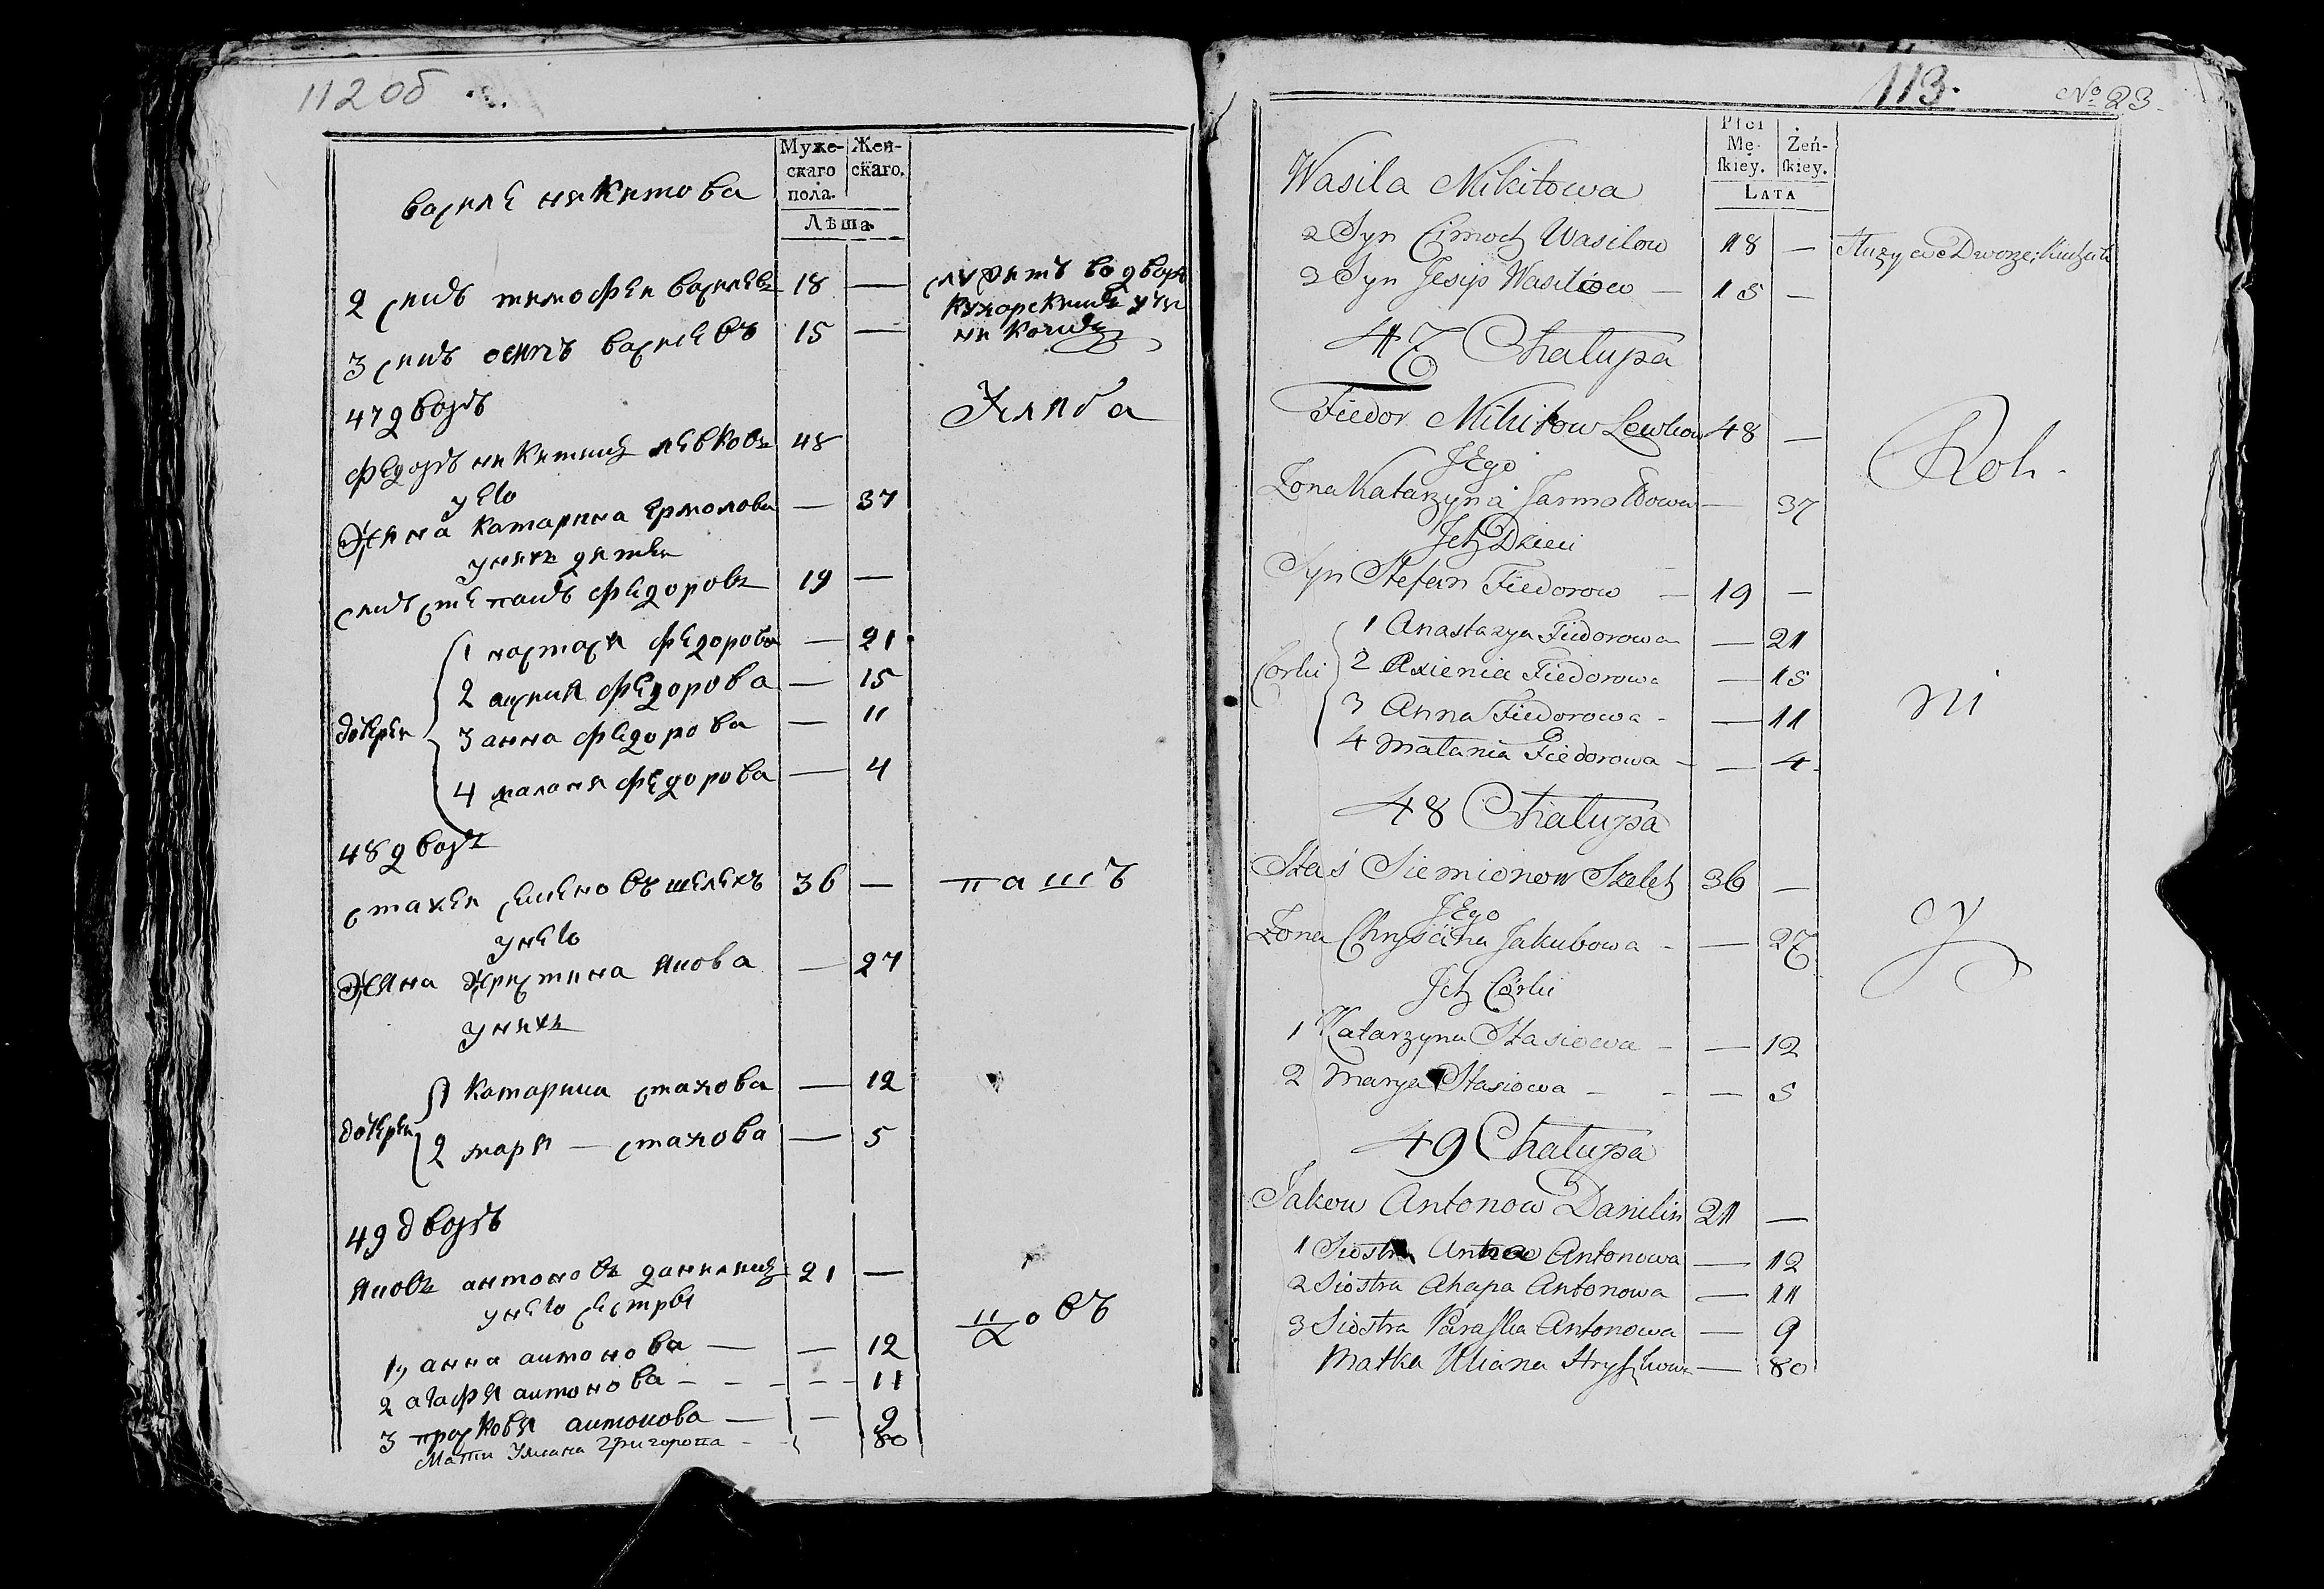 112 об
Муже-
скаго
пола.
Жен-
скаго.
Лѣта.
василѣ никитова
2 сынъ тимофеи василевъ 18 —
служитъ во дворѣ
кухарскимъ уче
никомъ
3 сынъ осипъ василевъ 15 —
47 дворъ
Хлѣба
федоръ никитинъ левковъ 48
у его
жена катарина ермолова — 37
у нихъ дѣтеи
сынъ степанъ федоровъ 19 —
дочери
1 настася федорова — 21
2 ақсиня федорова — 15
3 анна федорова — 11
4 маланя федорова — 4
48 дворъ
стахеи семеновъ шелехъ 36 —
пашъ
у него
жена христина якова — 27
у нихъ
дочери
1 катарина стахова — 12
2 маря — стахова — 5
49 дворъ
яковъ антоновъ данилинъ 21 —
у него сестры
повъ
1, анна антонова — — 12
2 агафя антонова — — 11
3 прасковя антонова — — 9
Мати Уляна Григорова — 80
113.
No 23
Płci
Mę-
ſkiey.
Żeń-
ſkiey.
LATA
Wasila Mikitowa
2 Syn Cimoch Wasilow 18 —
Służy we Dworze
3 Syn Jesip Wasilow — 15 —
47 Chałupa
Fiedor Mikitow Lewkow 48 —
Rol-
JEgo
Żona Katarzyna Jarmołowa — 37
Jch Dzieci
Syn Stefan Fiedorow — 19 —
Corki
1 Anastazya Fiedorowa — 21
2 Axienia Fiedorowa — 15
3 Anna Fiedorowa — — 11
ni
4 Małania Fiedorowa — — 4
48 Chałupa
Staś Siemionow Szelech 36 —
cy
JEgo
Żona Chryścina Jakubowa — — 27
Jch Córki
1 Katarzyna Stasiowa — — 12
2 Marya Stasiowa — — — 5
49 Chałupa
Jakow Antonow Danilin 21 —
1 Siostra Anna Antonowa — 12
2 Siostra Ahapa Antonowa — 11
3 Siostra Paraſka Antonowa — 9
Matka Uliana Hryhorowa — 80